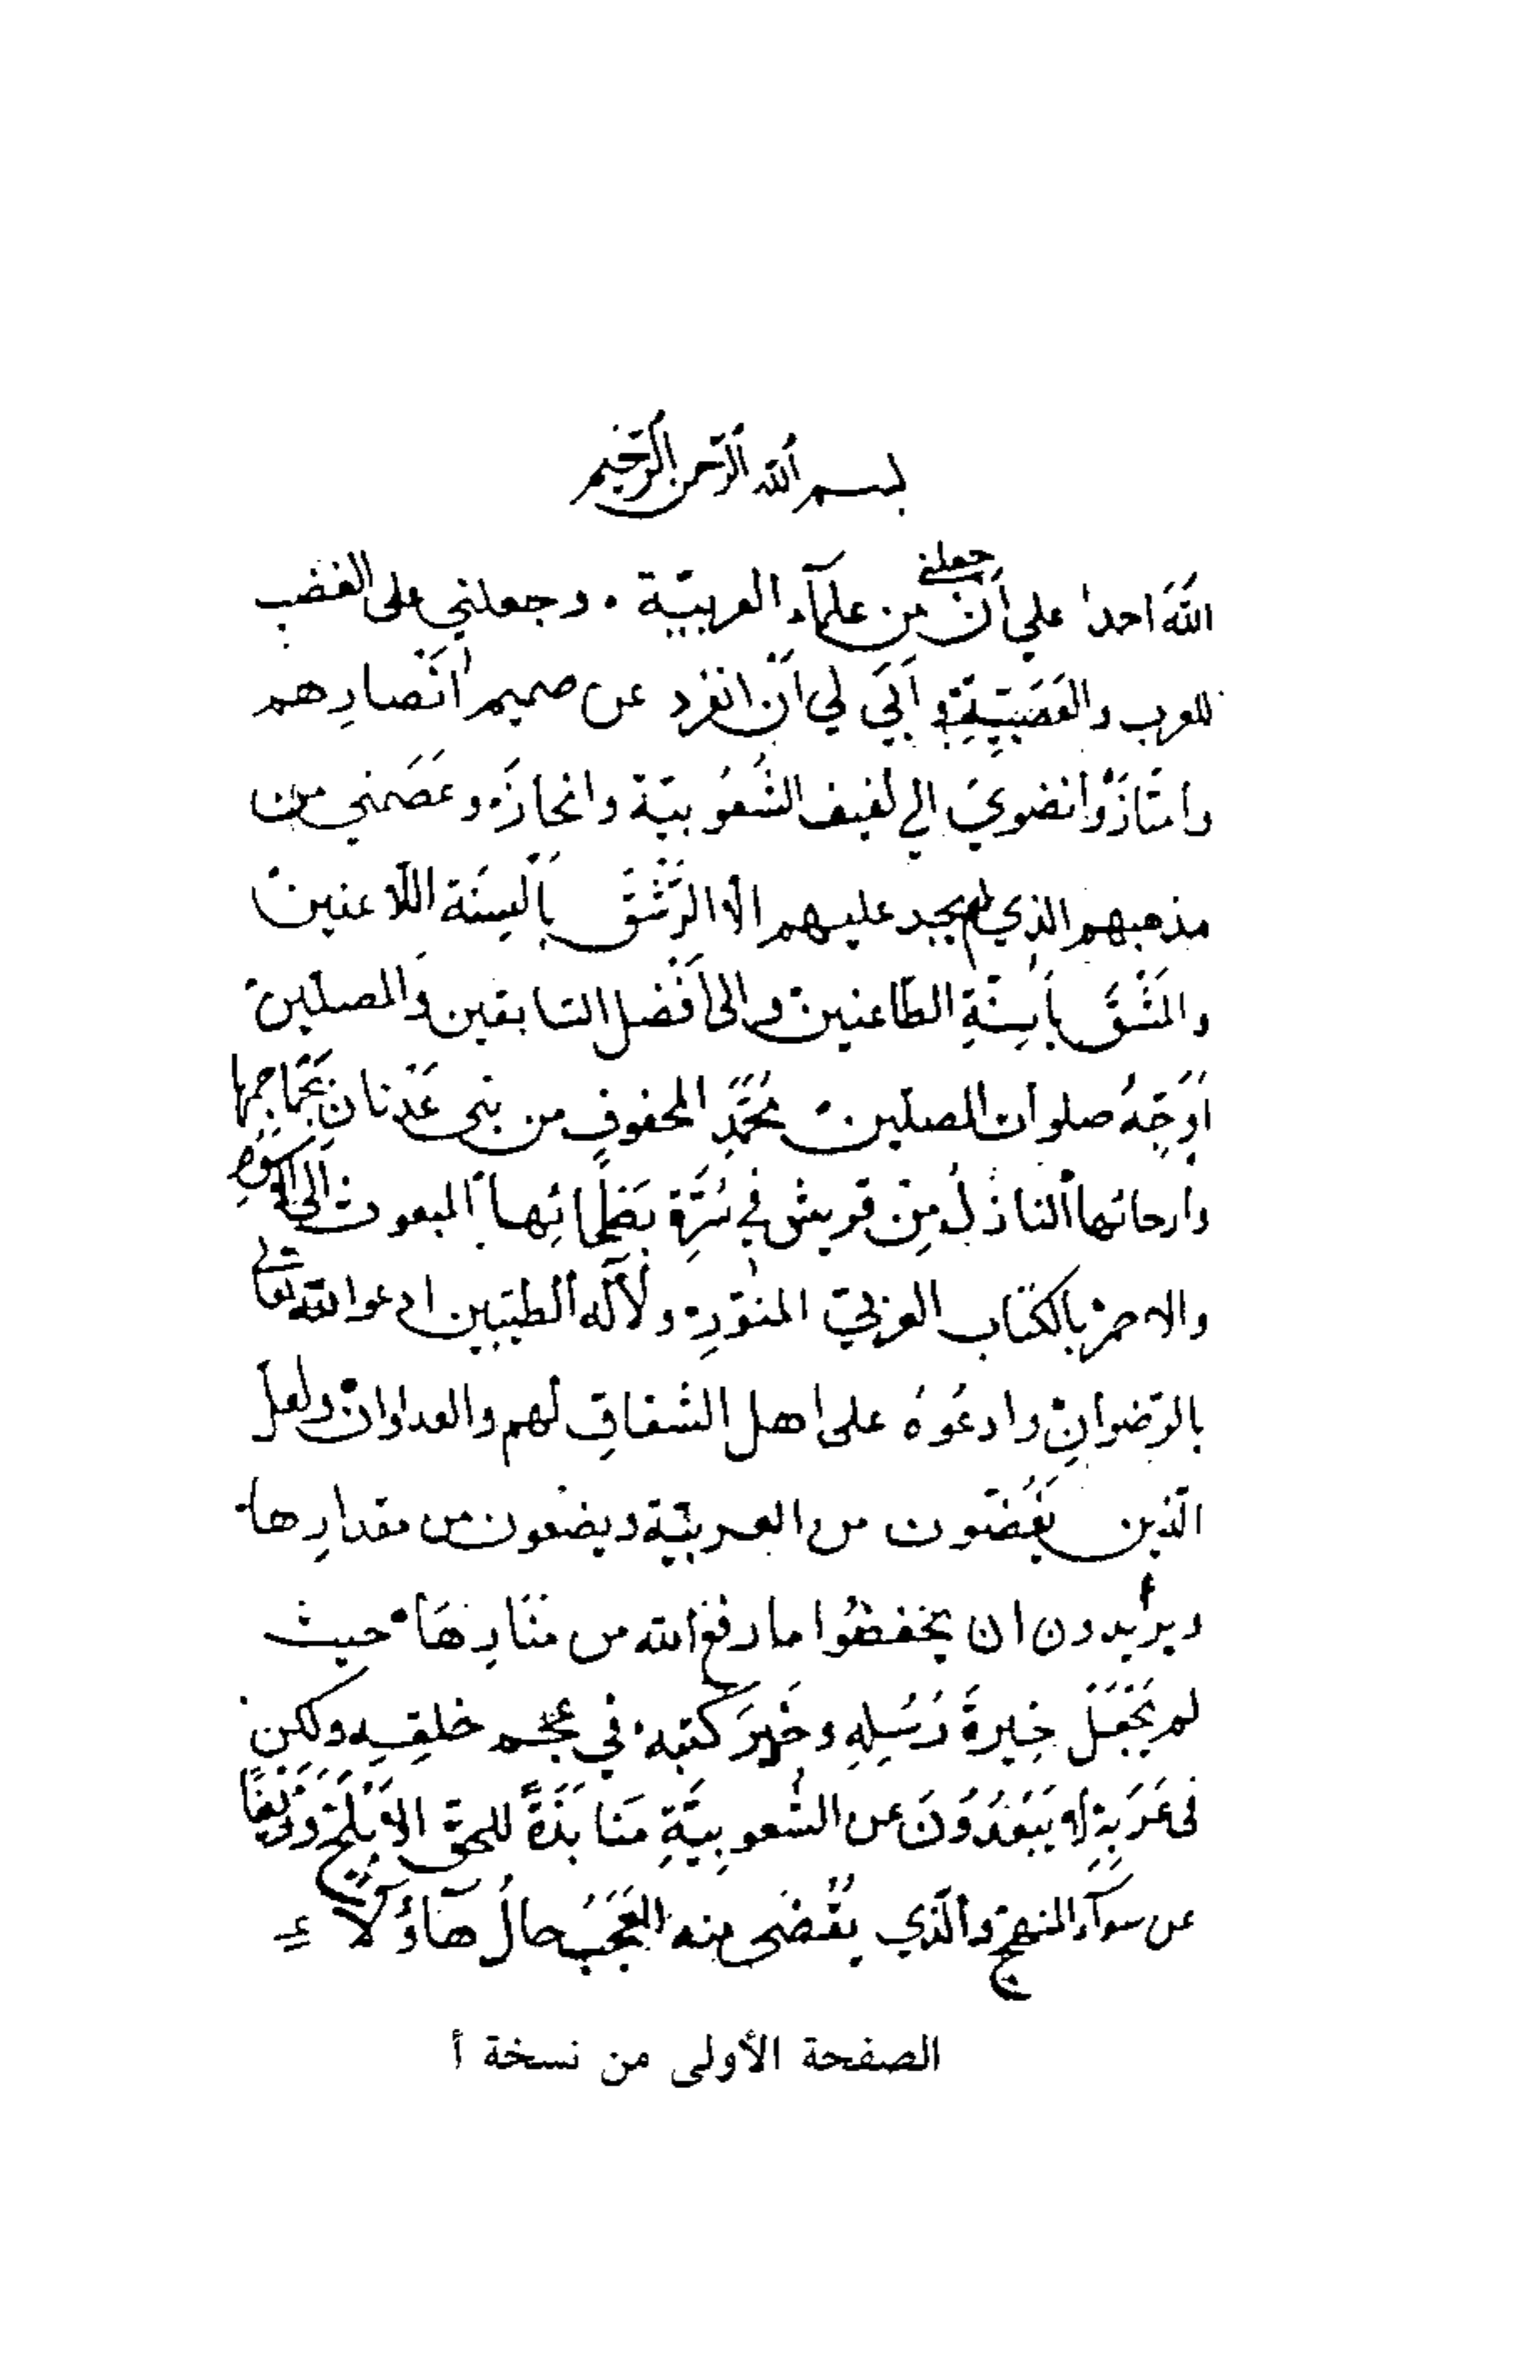 بسم الله الرحمن الرحيم
الله احمد علي أن جعلني من علمآء العربيّة . وجعلني على الغضب
للعرب والعَصَبِيَّةِ وأَبَى لي أَن انفرد عن صميم أَنْصارِهم
وامتَازَ وأنضويَ الي لفيف الشُّعُوبيّة وانحازَ وعَصَمني من
مذهبهم الذي لم يجد عليهم الّا الرَّشْقَ بأَلْسِنَة اللّاعنين
والمَشْقَ بأَسِنَّةِ الطّاعنين والى أَفْضل السّابقين والمصلّين
أوَجِّهُ صلوات المصلّين محُمَّدٍ المحفوف من بنى عَدْنان بجَمَاجِمها
وارحائها النازل مِنْ قريش في سُرَّةِ بَطْحائها المبعوث إلى الأسْوَدِ
والاحمر بالكتاب العربيّ المنوّرِ ولآله الطيّبين ادعوا الله تعالى
بالرّضوانِ وادعُوهُ على اهل الشّقاقِ لهم والعدوان ولعل
الّذين يَغُضّون من العربيّة ويضعون من مقدارِها
ويريدون ان يخفضُوا ما رفع الله من مَنَارِهَا حيث
لم يَجْعَلْ خِيرةَ رُسُلِهِ وخَيرَ كتبه في عجم خلقِهِ ولكِن
فى عَرَبِهِ لا يَبْعُدُوْنَ عن الشُّعوبِيَّةِ مُنَابَذَةً للحقّ الأَبْلَجِ وَزَيْغًا
عن سوآء المنهج والّذي يُقْضَى منه العَجَبُ حالُ هَآؤُلَآءِ
الصفحة الأولى من نسخة أ